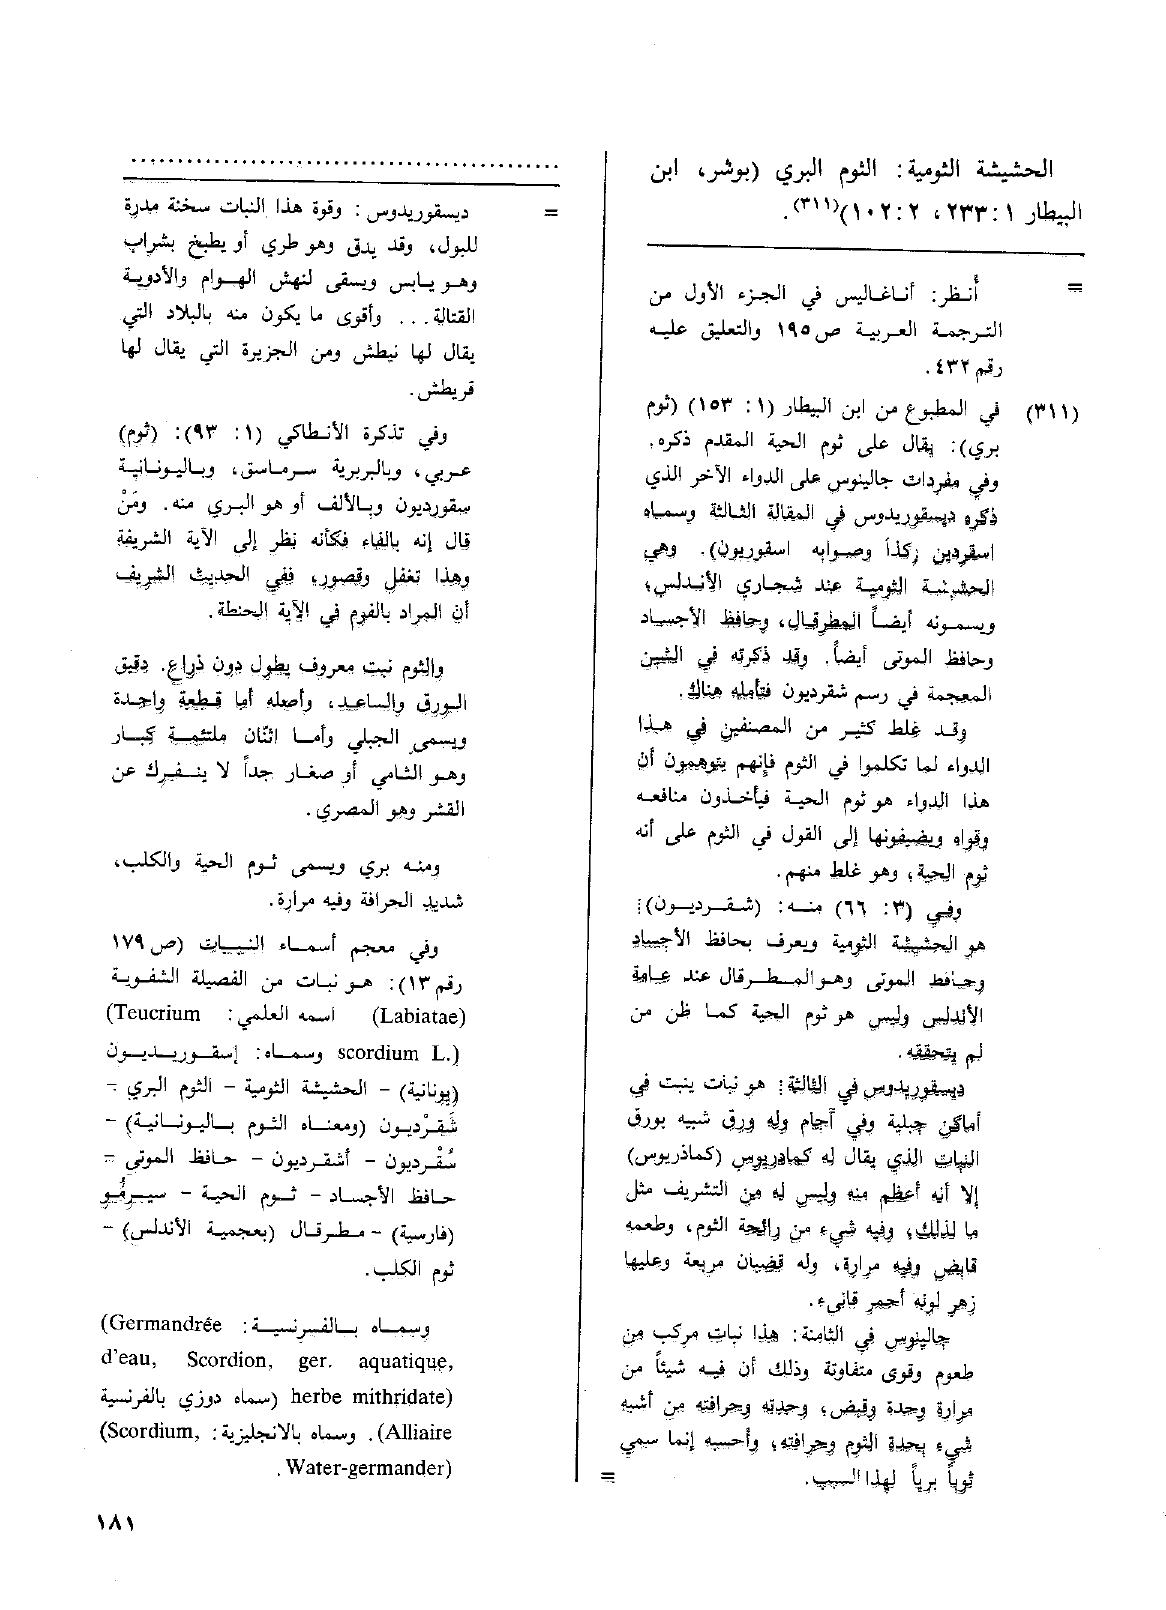 الحشيشة الثومية: الثوم البري (بوشر، ابن
البيطار ١: ٢٣٣، ٢: ١٠٢)(٣١١).
= أُنظر: أناغاليس في الجزء الأول من
الترجمة العربية ص ١٩٥ والتعليق عليه
رقم ٤٣٢.
(٣١١) في المطبوع من ابن البيطار (١: ١٥٣) (ثوم
بري): يقال على ثوم الحية المقدم ذكره.
وفي مفردات جالينوس على الدواء الآخر الذي
ذكره ديسقوريدوس في المقالة الثالثة وسماه
اسقردين (كذا وصوابه اسقوريون). وهي
الحشيشة الثومية عند شجاري الأندلس؛
ويسمونه أيضاً المطرقال، وحافظ الأجساد
وحافظ الموتى أيضاً. وقد ذكرته في الشين
المعجمة في رسم شقرديون فتأمله هناك.
وقد غلط كثير من المصنفين في هذا
الدواء لما تكلموا في الثوم فإنهم يتوهمون أن
هذا الدواء هو ثوم الحية فيأخذون منافعه
وقواه ويضيفونها إلى القول في الثوم على أنه
ثوم الحية؛ وهو غلط منهم.
وفي (٣: ٦٦) منه: (شقرديون):
هو الحشيشة الثومية ويعرف بحافظ الأجساد
وحافظ الموتى وهو المطرقال عند عامة
الأندلس وليس هو ثوم الحية كما ظن من
لم يتحققه.
ديسقوريدوس في الثالثة: هو نبات ينبت في
أماكن جبلية وفي آجام وله ورق شبيه بورق
النبات الذي يقال له كمادريوس (كماذريوس)
إلا أنه أعظم منه وليس له من التشريف مثل
ما لذلك؛ وفيه شيء من رائحة الثوم، وطعمه
قابض وفيه مرارة، وله قضبان مربعة وعليها
زهر لونه أحمر قانىء.
جالينوس في الثامنة: هذا نبات مركب من
طعوم وقوى متفاوتة وذلك أن فيه شيئاً من
مرارة وحدة وقبض؛ وحدته وحرافته من أشبه
شيء بحدة الثوم وحرافته؛ وأحسبه إنما سمي
ثوباً برياً لهذا السبب. =
............................................
= ديسقوريدوس: وقوة هذا النبات سخنة مدرة
للبول، وقد يدق وهو طري أو يطبخ بشراب
وهو يابس ويسقى لنهش الهوام والأدوية
القتالة... وأقوى ما يكون منه بالبلاد التي
يقال لها نيطش ومن الجزيرة التي يقال لها
قريطش.
وفي تذكرة الأنطاكي (١: ٩٣): (ثوم)
عربي، وبالبربرية سرماسق، وباليونانية
سقورديون وبالألف أو هو البري منه. ومَنْ
قال إنه بالفاء فكأنه نظر إلى الآية الشريفة
وهذا تغفل وقصور؛ ففي الحديث الشريف
أن المراد بالفوم في الآية الحنطة.
والثوم نبت معروف يطول دون ذراع. دقيق
الورق والساعد، وأصله أما قطعة واحدة
ويسمى الجبلي وأما اثنان ملتئمة كبار
وهو الشامي أو صغار جداً لا ينفرك عن
القشر وهو المصري.
ومنه بري ويسمى ثوم الحية والكلب،
شديد الحرافة وفيه مرارة.
وفي معجم أسماء النبات (ص ١٧٩
رقم ١٣): هو نبات من الفصيلة الشفوية
(Labiatae) اسمه العلمي: (Teucrium
scordium L.) وسماه: إسقوريديون
(يونانية) - الحشيشة الثومية - الثوم البري -
شَقَرْديون (ومعناه الثوم باليونانية) -
سُقُرْديون - أشقرديون - حافظ الموتى -
حافظ الأجساد - ثوم الحية - سيرمُو
(فارسية) - مطرقال (بعجمية الأندلس) -
ثوم الكلب.
وسماه بالفرنسية: (Germandrée
d'eau, Scordion, ger. aquatique,
herbe mithridate) (سماه دوزي بالفرنسية
(Alliaire). وسماه بالانجليزية: (Scordium,
Water-germander).
١٨١